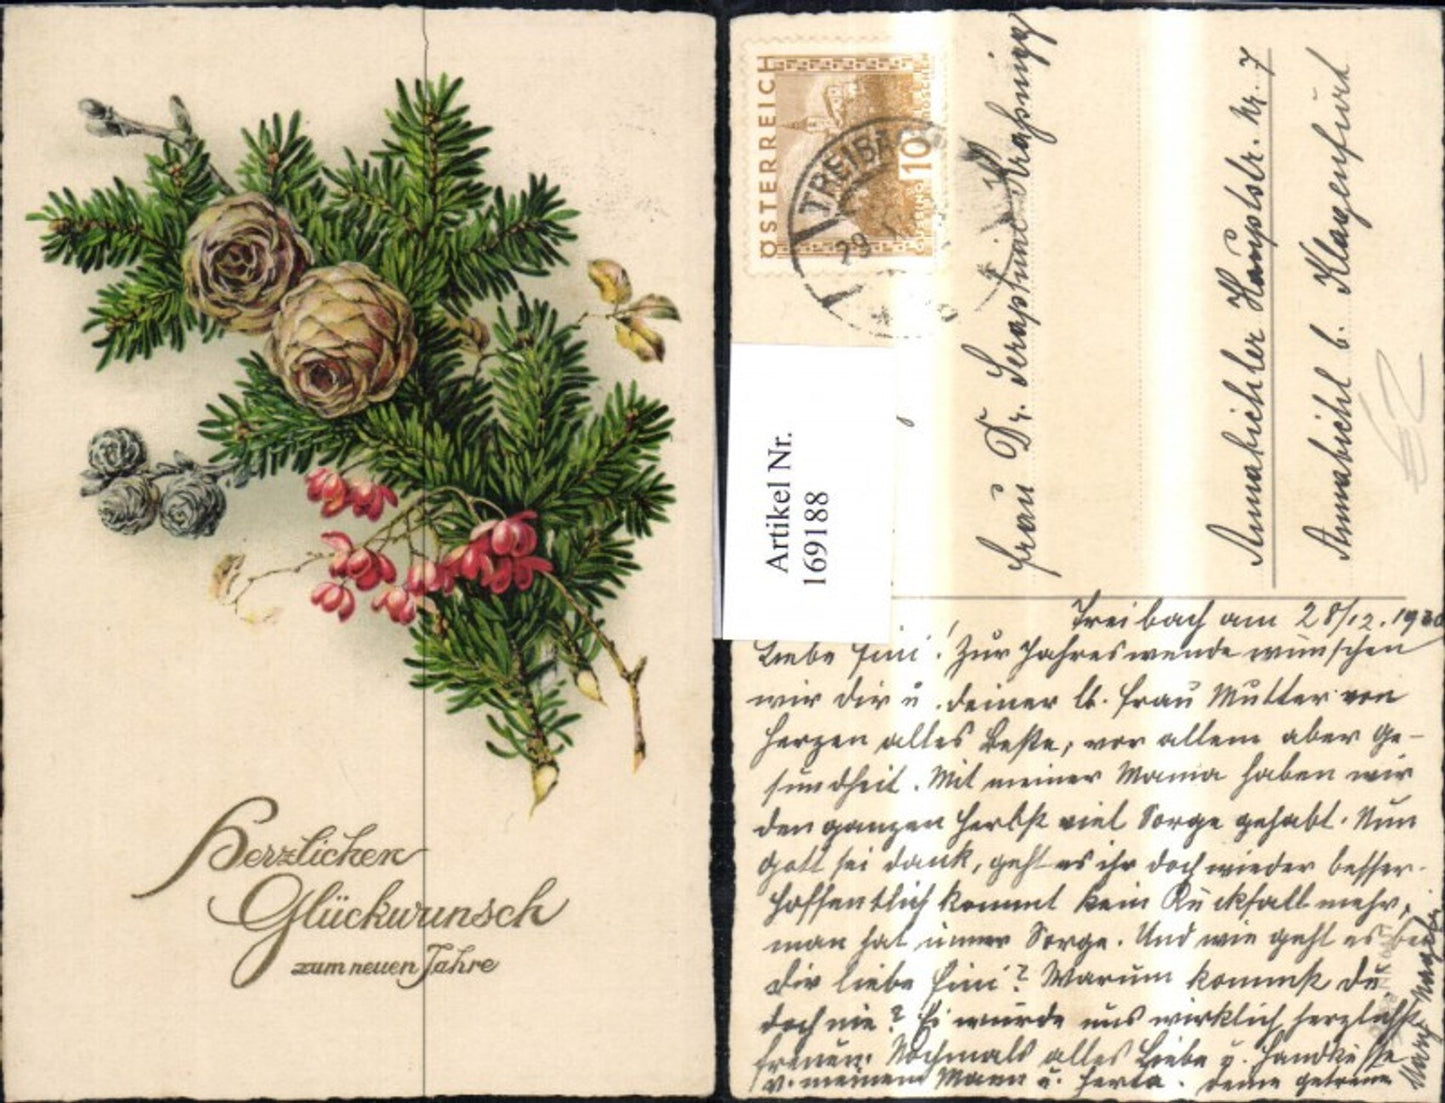 Herzlichen
Glückwunsch
zum neuen Jahre
ÖSTERREICH
10
GROSCHEN
GÜSSING
TREIBACH
29
Artikel Nr.
169188
Frau Dr. Serafine Kraßnigg
Annabichler Hauptstr. Nr. 7
Annabichl b. Klagenfurt
Treibach am 28/12. 1930
Liebe Fini! Zur Jahreswende wünschen
wir Dir u. deiner lb. Frau Mutter von
Herzen alles Beste, vor allem aber Ge-
sundheit. Mit meiner Mama haben wir
den ganzen Herbst viel Sorge gehabt. Nun
Gott sei Dank, geht es ihr doch wieder besser.
Hoffentlich kommt kein Rückfall mehr,
man hat immer Sorge. Und wie geht es bei
Dir liebe Fini? Warum kommst Du
doch nie? Es würde uns wirklich herzlichst
freuen. Nochmals alles Liebe u. Handküsse
v. meinem Mann u. Herta. Deine getreue